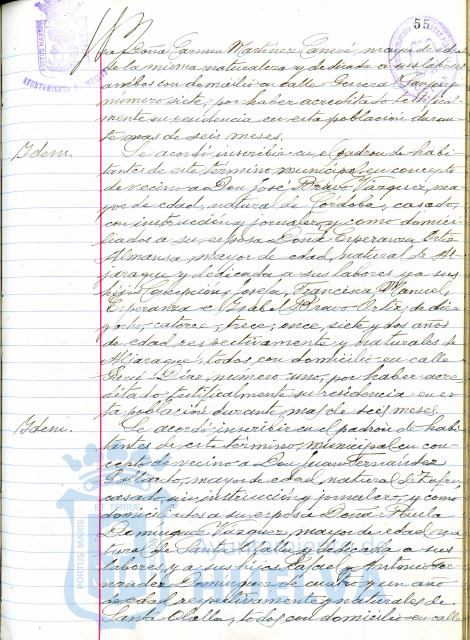 55
Doña Carmen Martinez Canevé mayor de edad
de la misma naturaleza y dedicada a sus labores
ambos con domicilio en calle General Sanjurjo
numero siete, por haber acreditado testifical-
mente su residencia en esta población duran-
te mas de seis meses.
Idem.
Se acordó inscribir en el padron de habi-
tantes de este término municipal en concepto
de vecino a Don José Bravo Vázquez, ma-
yor de edad, natural de Córdoba, casado,
con instrucción y jornalero, y como domici-
liados a su esposa Doña Esperanza Ortiz
Almansa, mayor de edad, natural de Al-
jaraque, y dedicada a sus labores y a sus
hijos Concepción, Josefa, Francisca, Manuel,
Esperanza e Ysabel Bravo Ortiz, de diez
y ocho, catorce, trece, once, siete y dos años
de edad respectivamente y naturales de
Aljaraque, todos con domicilio en calle
Díaz, número uno, por haber acre-
ditado testificalmente su residencia en es-
ta población durante mas de seis meses.
Idem.
Se acordó inscribir en el padron de habi-
tantes de este término municipal en con-
cepto de vecino a Don Juan Fernández
Gallardo, mayor de edad, natural de
casado, sin instrucción y jornalero, y como
domiciliados a su esposa Doña Paula
Dominguez Vázquez, mayor de edad, na-
tural de Santa Olalla y dedicada a sus
labores, y a sus hijos Rafael y Antonio Fer-
nandez Dominguez de cuatro y un año
de edad respectivamente y naturales de
Santa Olalla, todos con domicilio en calle
PORTUS MARIS
ET TERRAE
Ayuntamiento de
HUELVA